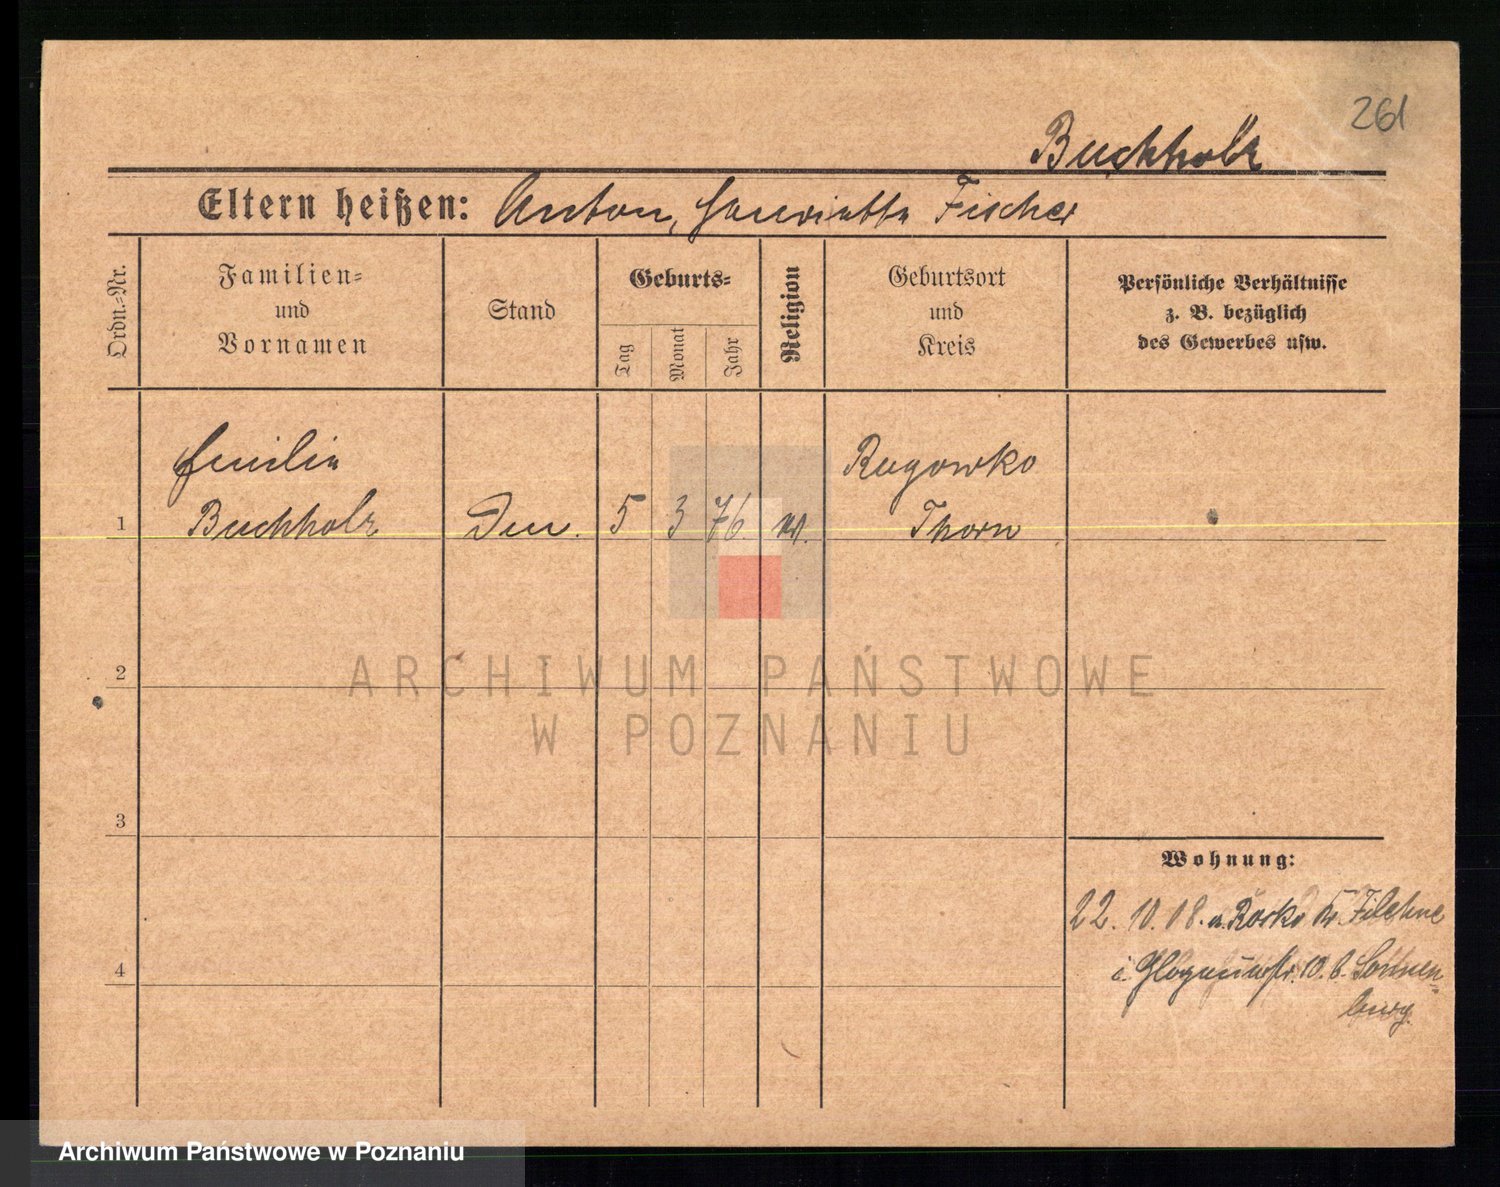 261
Buchholz
Eltern heißen: Anton, Henriette Fischer
Ordn.-Nr.
Familien-
und
Vornamen
Stand
Geburts-
Tag
Monat
Jahr
Religion
Geburtsort
und
Kreis
Persönliche Verhältnisse
z. B. bezüglich
des Gewerbes usw.
Emilie
Rugowko
1 Buchholz 5 3 76. Thorn
ARCHIWUM PAŃSTWOWE
W POZNANIU
2
3
Wohnung:
22. 10. 08. a. Rosko Kr. Filehne
i. Glogauerstr. 10. b. Sonnen-
burg.
4
Archiwum Państwowe w Poznaniu